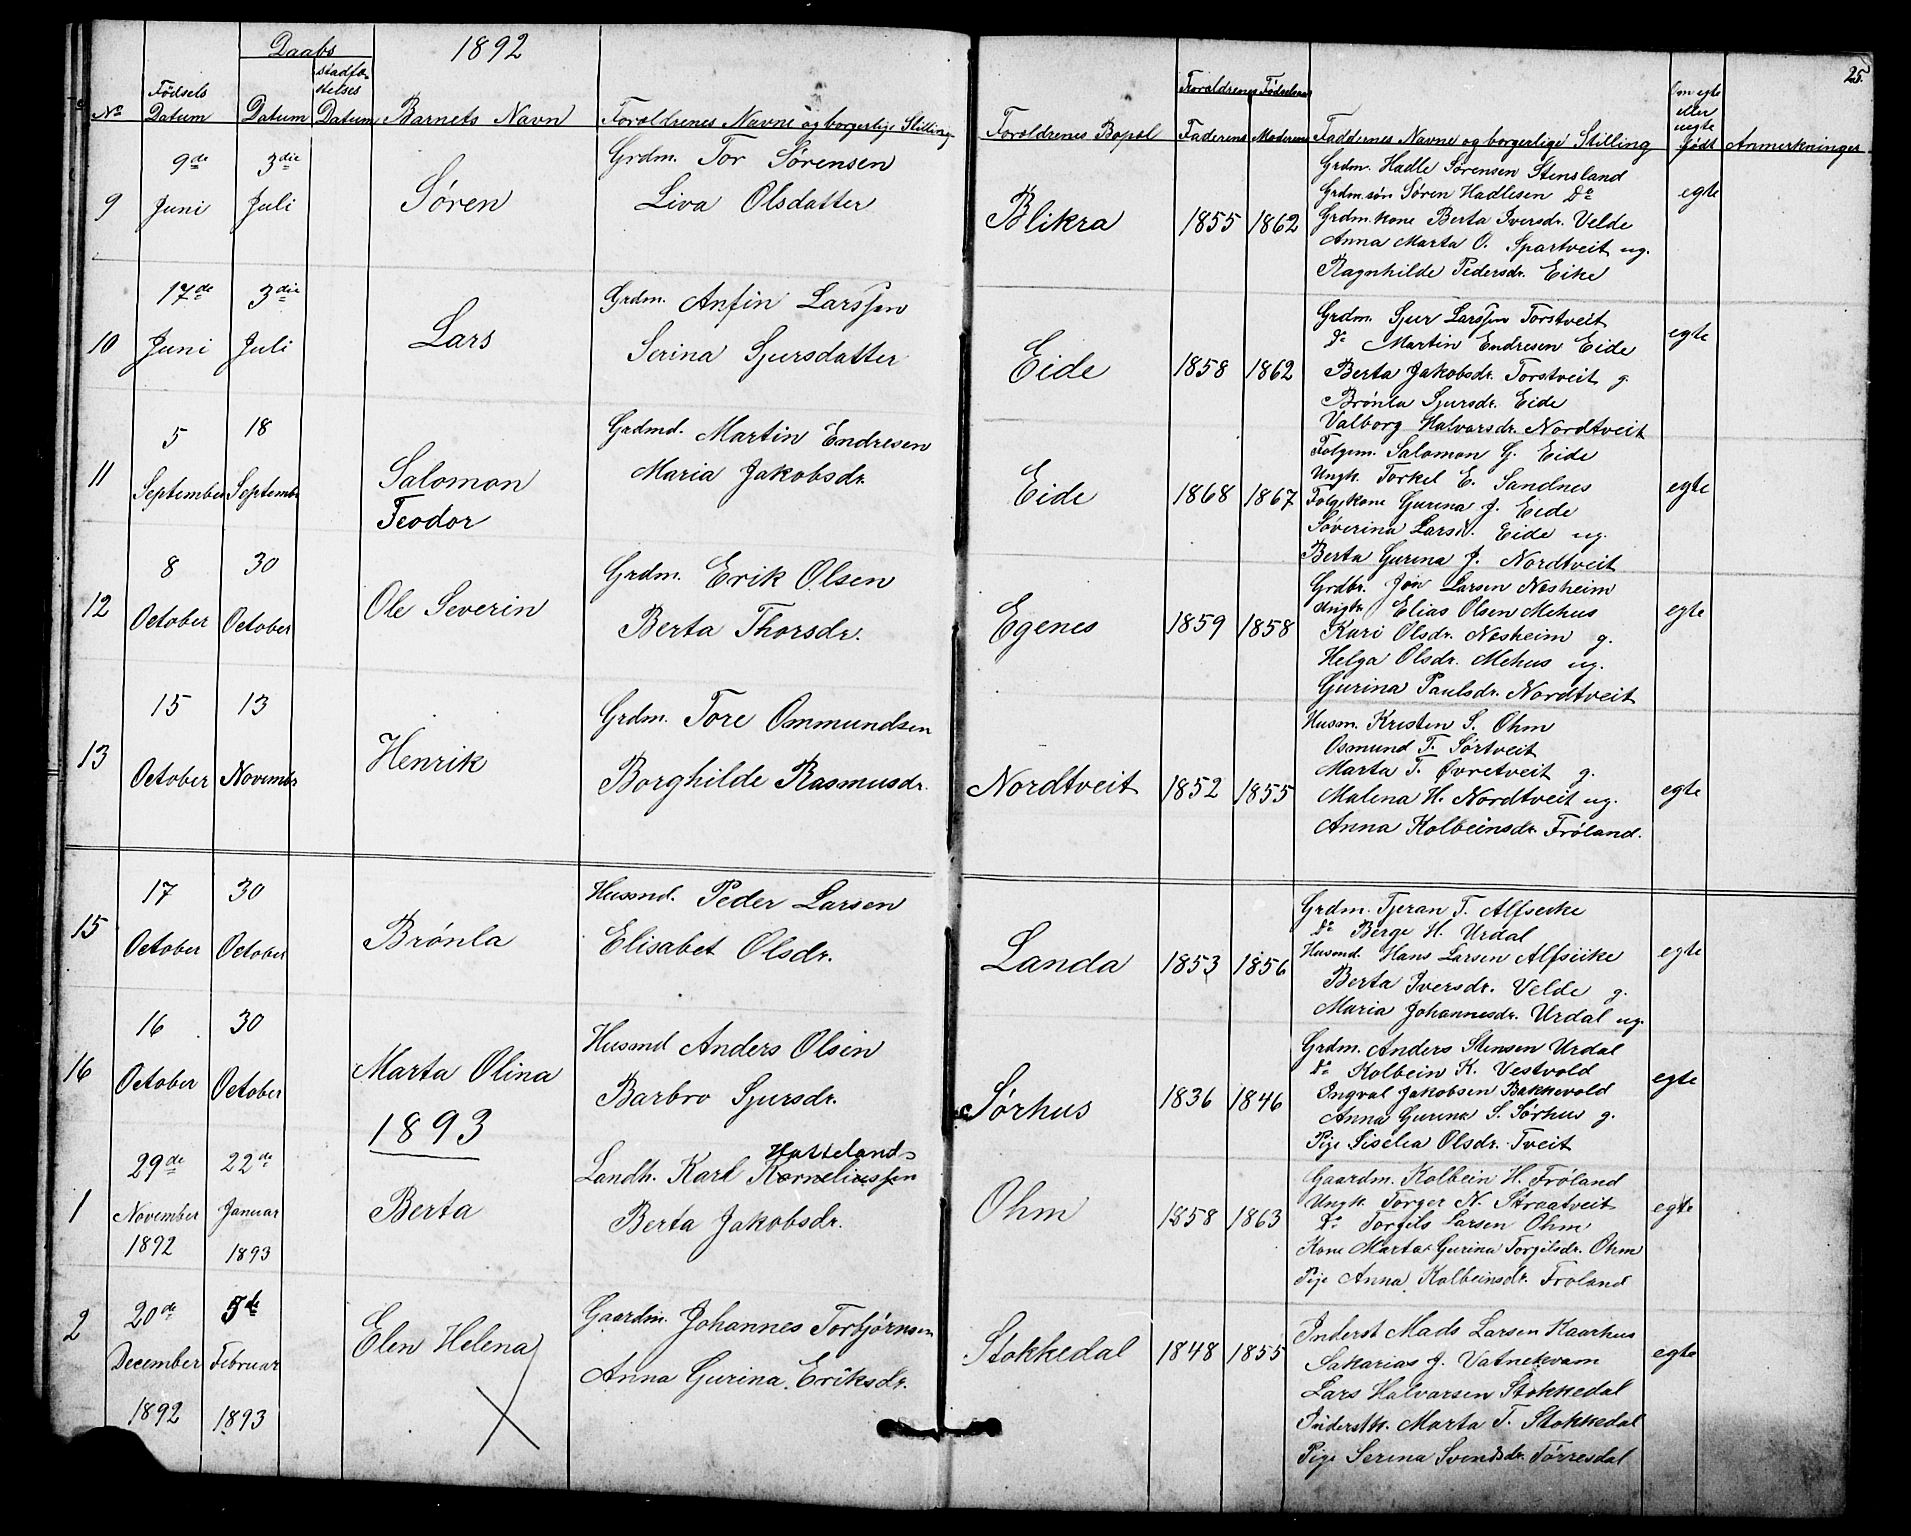 1892
25.
Daabs
stadfæ-
stelses
Forældrenes Fødselsaar
Om egte
eller
uegte
født
No
Fødsels
Datum
Datum
Datum
Barnets Navn
Forældrenes Navne og borgerlige Stilling
Forældrenes Bopæl
Faderens
Moderens
Faddernes Navne og borgerlige Stilling
Anmerkninger
9
9de
Juni
3die
Juli
Søren
Grdm. Tor Sørensen
Liva Olsdatter
Blikra
1855
1862
Grdm. Hadle Sørensen Stensland
Grdm.søn Søren Hadlesen Do
Grdm.kone Berta Iversdr. Velde
Anna Marta O. Spartveit ug.
Ragnhilde Pedersdr. Eike
egte
10
17de
Juni
3die
Juli
Lars
Grdm. Anfin Larssen
Serina Sjursdatter
Eide
1858
1862
Grdm. Sjur Larssen Torstveit
do Martin Endresen Eide
Berta Jakobsdr. Torstveit g.
Brønla Sjursdr. Eide
Valborg Halvorsdr. Nordtveit
egte
11
5
September
18
Septembr
Salomon
Teodor
Grdmd. Martin Endresen
Maria Jakobsdr.
Eide
1868
1867
Folgem. Salomon G. Eide
Ungk. Torkel E. Sandnes
Folgekone Gurina J. Eide
Søverina Larsd. Eide ug.
Berta Gurina J. Nordtveit
egte
12
8
October
30
October
Ole Severin
Grdm. Erik Olsen
Berta Thorsdr.
Egenes
1859
1858
Grdbr. Jon Larsen Næsheim
Ungk. Elias Olsen Mehus
Kari Olsdr. Næsheim g.
Helga Olsdr. Mehus ug.
Gurina Paulsdr. Nordtveit
egte
13
15
October
13
Novembr
Henrik
Grdm. Tore Ommundsen
Borghilde Rasmusdr.
Nordtveit
1852
1855
Husm. Kristen S. Ohm
Osmund T. Sørtveit
Marta T. Øvretveit g.
Malena H. Nordtveit ug.
Anna Kolbeinsdr. Frøland.
egte
15
17
October
30
October
Brønla
Husmd. Peder Larsen
Elisabet Olsdr.
Landa
1853
1856
Grdm. Tjeran T. Alfseike
do Berge H. Urdal
Husmd. Hans Larsen Alfseike
Berta Iversdr. Velde g.
Maria Johannesdr. Urdal ug.
egte
16
16
October
30
October
Marta Olina
Husmd Anders Olsen
Barbro Sjursdr.
Sørhus
1836
1846
Grdm. Anders Stensen Urdal
do Kolbein K. Vestvold
Ingval Jakobsen Bakkevold
Anna Gurina S. Sørhus g.
Pige Siselia Olsdr. Tveit
egte
1893
1
29de
November
1892
22de
Januar
1893
Berta
Hatteland
Landh. Karl Korneliussen
Berta Jakobsdr.
Ohm
1858
1863
Gaardm. Kolbein H. Frøland
Ungk. Torger N. Straatveit
Do Torgils Larsen Ohm
Kone Marta Gurina Torgilsdr. Ohm
Pige Anna Kolbeinsdr. Frøland
egte
2
20de
December
1892
5te
Februar
1893
Elen Helena
Gaardm. Johannes Torbjørnsen
Anna Gurina Eriksdr.
Stokkedal
1848
1855
Inderst Mads Larsen Kaarhus
Sakarias J. Vatnekvam
Lars Halvorsen Stokkedal
Inderstk. Marta T. Stokkedal
Pige Serina Svendsdr. Tørresdal
egte